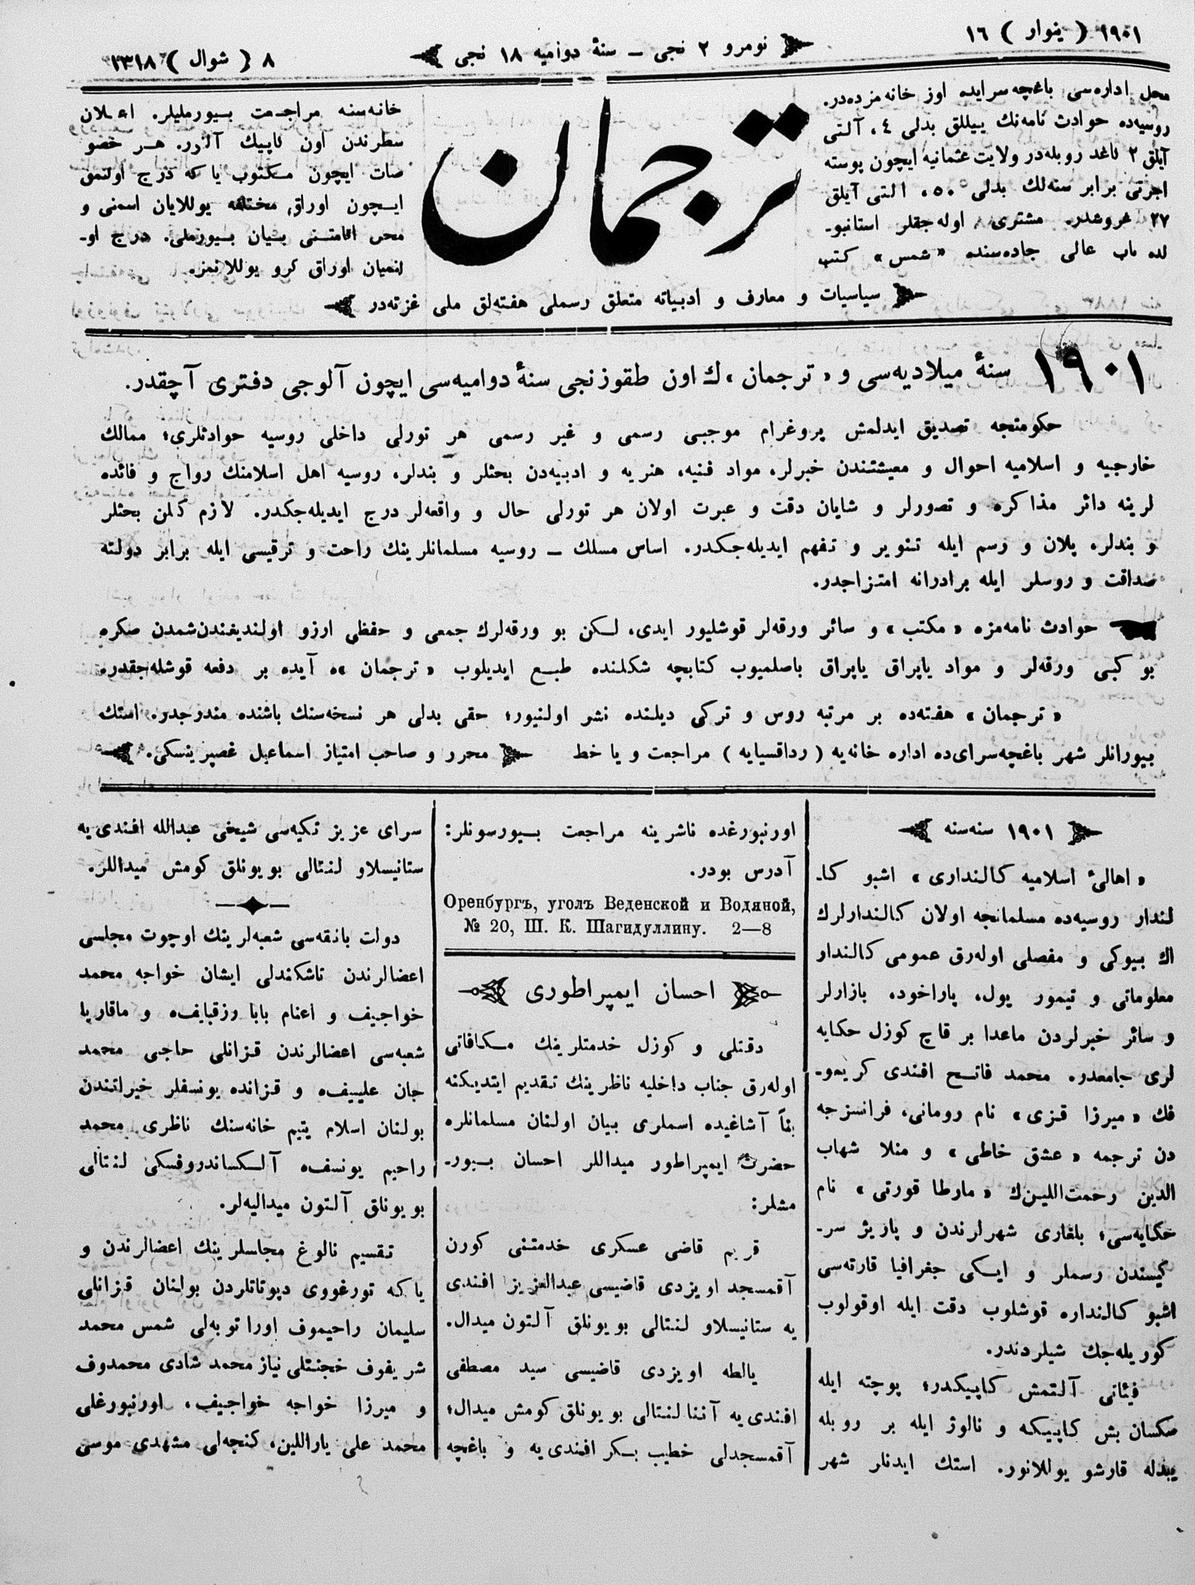 ١٩٠١ ( ینوار ) ١٦
نومرو ٢ نجی — سنۀ دوامیه ١٨ نجی
٨ ( شوال ) ١٣١٨
محل اداره‌سی باغچه سرایده اوز خانه‌مزده‌در.
روسیه‌ده حوادث نامه‌نك ییللق بدلی ٤، آلتی
آیلق ٢ کاغد روبله‌در ولایت عثمانیه ایچون پوسته
اجرتی برابر سنه‌لك بدلی ٥٠، التی آیلق
٢٧ غروشدر. مشتری اوله‌جقلر استانبو-
لده باب عالی جاده‌سنده «شمس» کتب
ترجمان
خانه‌سنه مراجعت بیورملیلر. اعلان
سطرندن اون کاپیك آلنور. هر خصو
صات ایچون مکتوب یا که درج اولنمق
ایچون اوراق مختلفه یوللایان اسمنی و
محل اقامتنی بیان بیورملی. درج او-
لنمیان اوراق کرو یوللانمز.
سیاسیات و معارف و ادبیاته متعلق رسملی هفته‌لق ملی غزته‌در
١٩٠١ سنۀ میلادیه‌سی و «ترجمان»ك اون طقوزنجی سنۀ دوامیه‌سی ایچون آلوجی دفتری آچقدر.
حکومتجه تصدیق ایدلمش پروغرام موجبی رسمی و غیر رسمی هر تورلی داخلی روسیه حوادثلری؛ ممالك
خارجیه و اسلامیه احوال و معیشتندن خبرلر، مواد فنیه، هنریه و ادبیه‌دن بحثلر و بندلر، روسیه اهل اسلامنك رواج و فائده
لرینه دائر مذاکره و تصورلر و شایان دقت و عبرت اولان هر تورلی حال و واقعه‌لر درج ایدیله‌جکدر. لازم کلن بحثلر
و بندلر، پلان و رسم ایله تنویر و تفهیم ایدیله‌جکدر. اساس مسلك — روسیه مسلمانلرینك راحت و ترقیسی ایله برابر دولته
صداقت و روسلر ایله برادرانه امتزاجدر.
حوادث نامه‌مزه «مکتب» و سائر ورقه‌لر قوشلیور ایدی، لکن بو ورقه‌لرك جمعی و حفظی ارزو اولندیغندن‌شمدن صکره
بو کبی ورقه‌لر و مواد یاپراق یاپراق باصلمیوب کتابچه شکلنده طبع ایدیلوب «ترجمان»ه آیده بر دفعه قوشله‌جقدر.
«ترجمان» هفته‌ده بر مرتبه روس و ترکی دیلنده نشر اولنیور؛ حقی بدلی هر نسخه‌سنك باشنده مندرجدر. استك
بیورانلر شهر باغچه‌سرای‌ده اداره خانه‌یه (رداقسیایه) مراجعت و یا خط
محرر و صاحب امتیاز اسماعیل غصپرینسکی.
١٩٠١ سنه‌سنه
«اهالیٔ اسلامیه کالنداری» اشبو کا-
لندار روسیه‌ده مسلمانجه اولان کالندارلرك
اك بیوکی و مفصلی اوله‌رق عمومی کالندار
معلوماتی و تیمور یول، پاراخود، بازارلر
و سائر خبرلردن ماعدا بر قاچ کوزل حکایه
لری جامعدر. محمد فاتح افندی کریمو-
فك «میرزا قزی» نام رومانی، فرانسزجه
دن ترجمه «عشق خاطی» و منلا شهاب
الدین رحمت‌اللین‌ك «مارطا قورتی» نام
حکایه‌سی؛ بلغاری شهرلرندن و پاریژ سر-
کیسندن رسملر و ایکی جغرافیا قارته‌سی
اشبو کالنداره قوشلوب دقت ایله اوقولوب
کوریله‌جك شیلردندر.
فیئاتی آلتمش کاپیکدر؛ پوچته ایله
سکسان بش کاپیکه و نالوژ ایله بر روبله
یبدله قارشو یوللانور. استك ایدنلر شهر
اورنبورغده ناشرینه مراجعت بیورسونلر:
آدرس بودر.
Оренбургъ, уголъ Веденской и Водяной,
№ 20, Ш. К. Шагидуллину. 2—8
احسان ایمپراطوری
دقتلی و کوزل خدمتلرینك مکافاتی
اوله‌رق جناب داخلیه ناظرینك تقدیم ایتدیکنه
بنأً آشاغیده اسملری بیان اولنان مسلمانلره
حضرت ایمپراطور میداللر احسان بیور-
مشلر:
قریم قاضی عسکری خدمتنی کورن
آقمسجد اویزدی قاضیسی عبدالعزیز افندی
یه ستانیسلاو لنتالی بویونلق آلتون میدال.
یالطه اویزدی قاضیسی سید مصطفی
افندی‌یه آننا لنتالی بویونلق کومش میدال؛
آقمسجدلی خطیب بکر افندی‌یه و باغچه
سرای عزیز تکیه‌سی شیخی عبدالله افندی‌یه
ستانیسلاو لنتالی بویونلق کومش میداللر.
دولت بانقه‌سی شعبه‌لرینك اوچوت مجلسی
اعضالرندن تاشکندلی ایشان خواجه محمد
خواجیف و اعنام بابا رزقبایف، و ماقاریا
شعبه‌سی اعضالرندن قزانلی حاجی محمد
جان علییف، و قزانده یونسفلر خیراتندن
بولنان اسلام یتیم خانه‌سنك ناظری، محمد
راحیم یونسف، آلکساندروفسکی لنتالی
بویونلق آلتون میدالیه‌لر.
تقسیم نالوغ مجلسلرینك اعضالرندن و
یا که تورغووی دپوتاتلردن بولنان قزانلی
سلیمان راحیموف اوراتوبه‌لی شمس محمد
شریفوف خجنتلی نیاز محمد شادی محمدوف
و میرزا خواجه خواجیف، اورنبورغلی
محمد علی یاراللین، کنجه‌لی مشهدی موسی